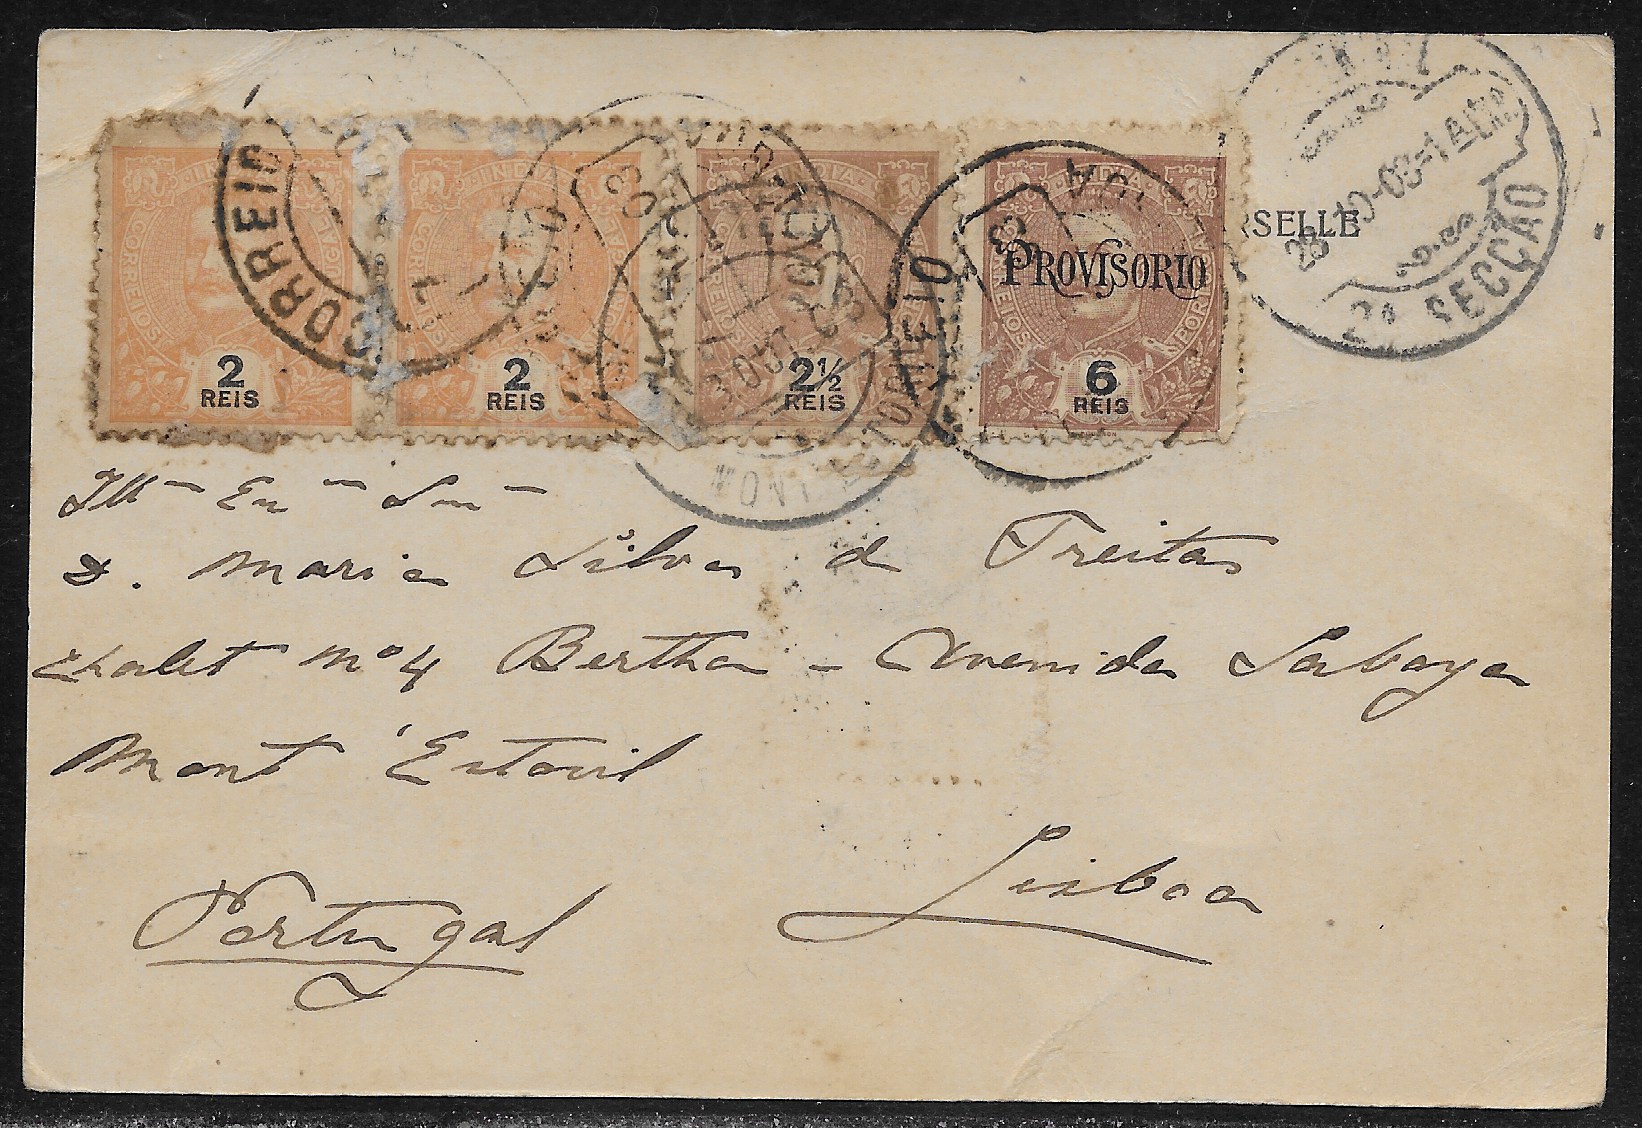 INDIA
CORREIOS
PORTUGAL
2
REIS
INDIA
CORREIOS
PORTUGAL
2
REIS
INDIA
CORREIOS
PORTUGAL
2½
REIS
INDIA
CORREIOS
PORTUGAL
PROVISORIO
6
REIS
CORREIO
03
CORREIO
NOVA
03
RSELLE
2ª SECCÃO
Illᵐᵃ Exᵐᵃ Snrᵃ
D. Maria Silva de Freitas
Chalet Nº 4 Bertha - Avenida Saboya
Mont' Estoril
Lisboa
Portugal